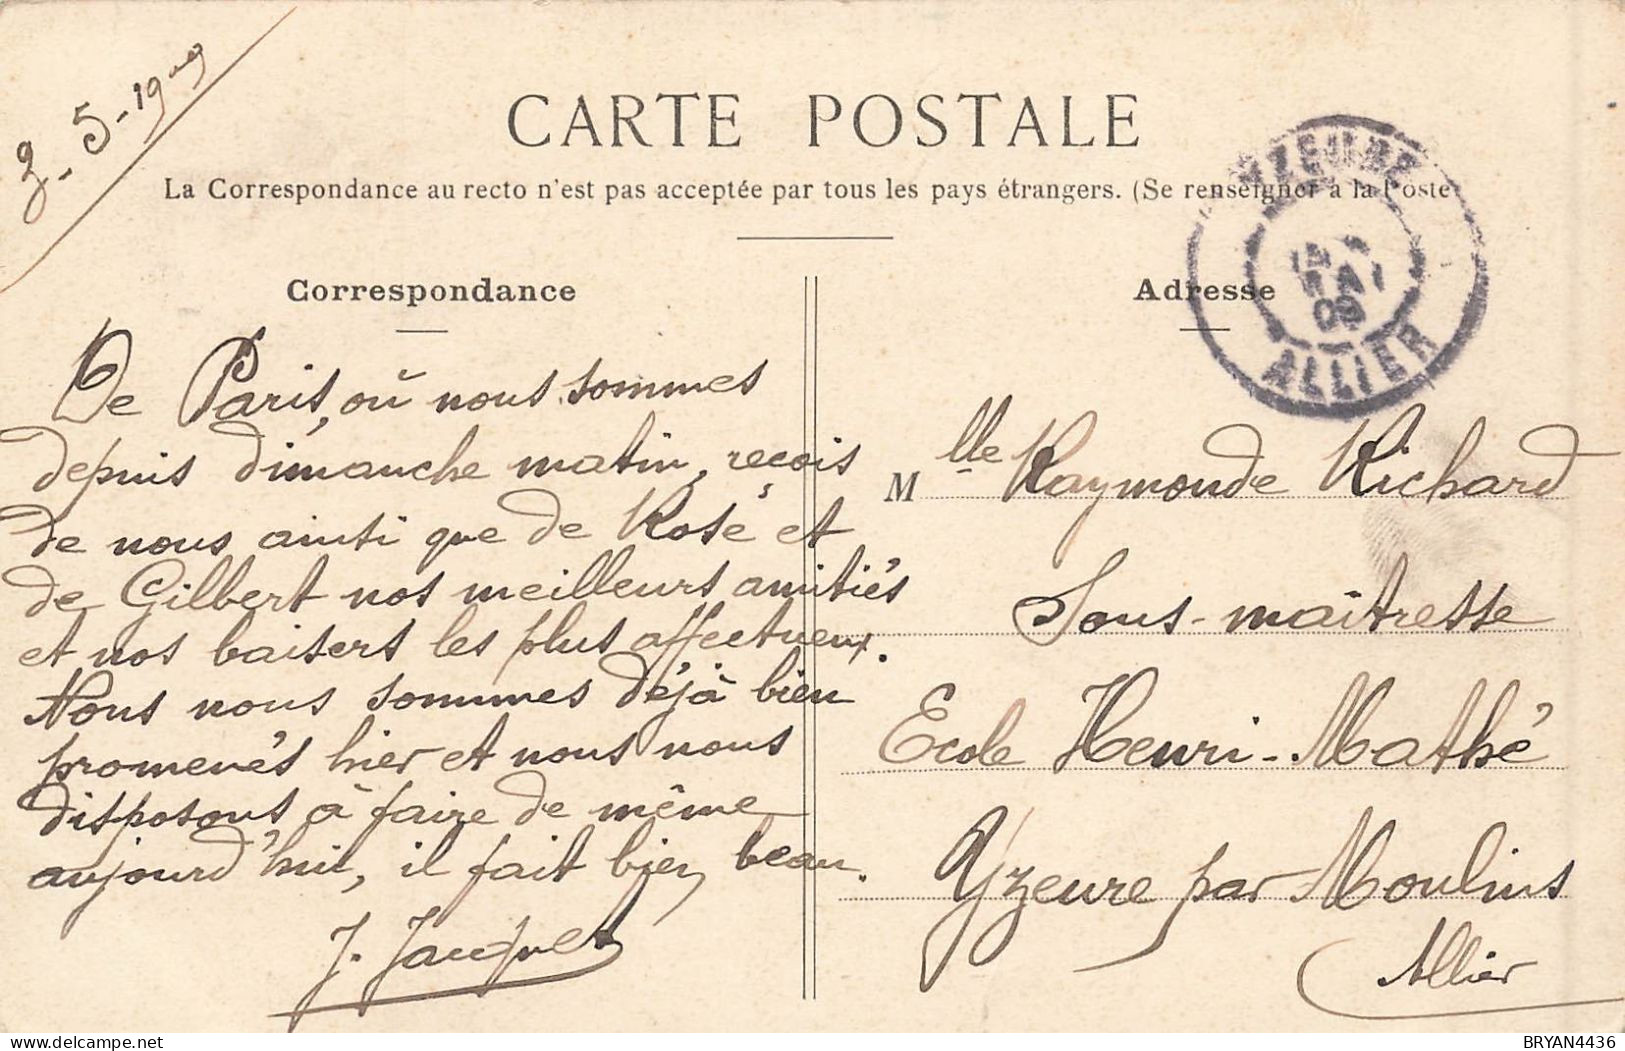 3-5-1909
CARTE POSTALE
La Correspondance au recto n'est pas acceptée par tous les pays étrangers. (Se renseigner à la Poste
YZEURE
MAI
09
ALLIER
Correspondance
De Paris, où nous sommes
depuis dimanche matin, reçois
de nous ainsi que de Rose et
de Gilbert nos meilleurs amitiés
et nos baisers les plus affectueux.
Nous nous sommes déjà bien
promenés hier et nous nous
disposons à faire de même
aujourd'hui, il fait bien beau.
J. Jacquet
Adresse
Mlle Raymonde Richard
Sous-maîtresse
Ecole Henri-Mathé
Yzeure par Moulins
Allier
BRYAN4436